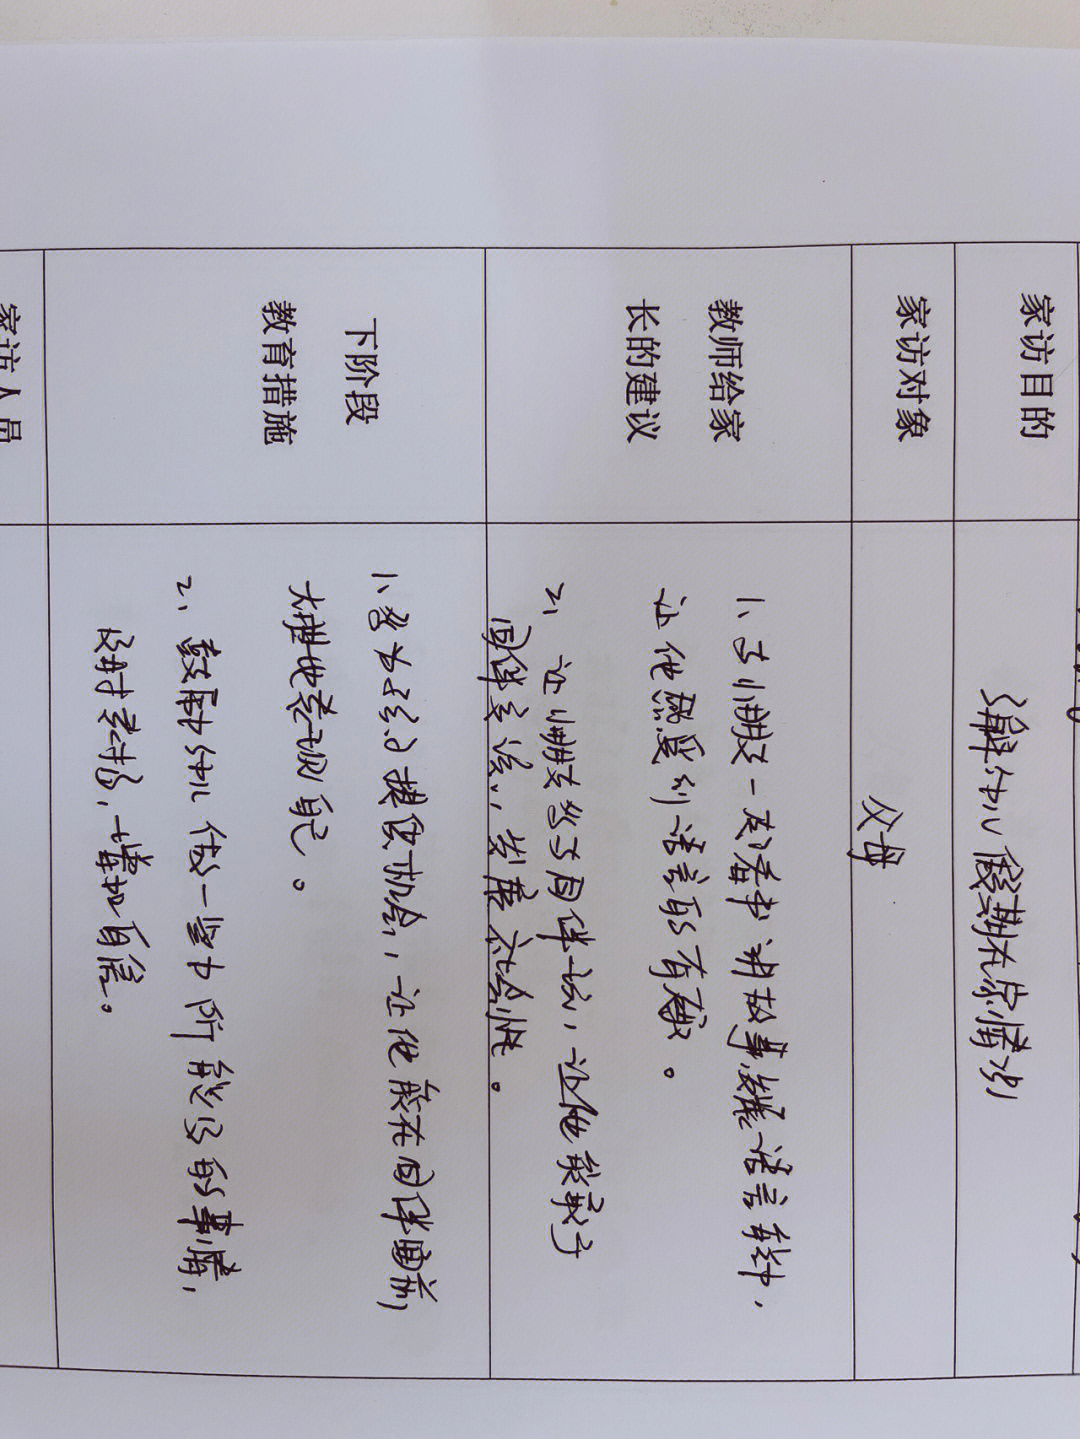 家访目的
了解幼儿假期在家情况
家访对象
父母
教师给家
长的建议
1、与小朋友一起看书讲故事,发展语言表达中,
让他感受到语言的有趣。
2、让小朋友多与同伴玩,让他能敢于
同伴交谈,发展社会性。
下阶段
教育措施
1、努力给他提供机会,让他能在同伴面前,
大胆地表现自己。
2、鼓励幼儿做一些力所能及的事情,
及时表扬,增加自信。
家访人员